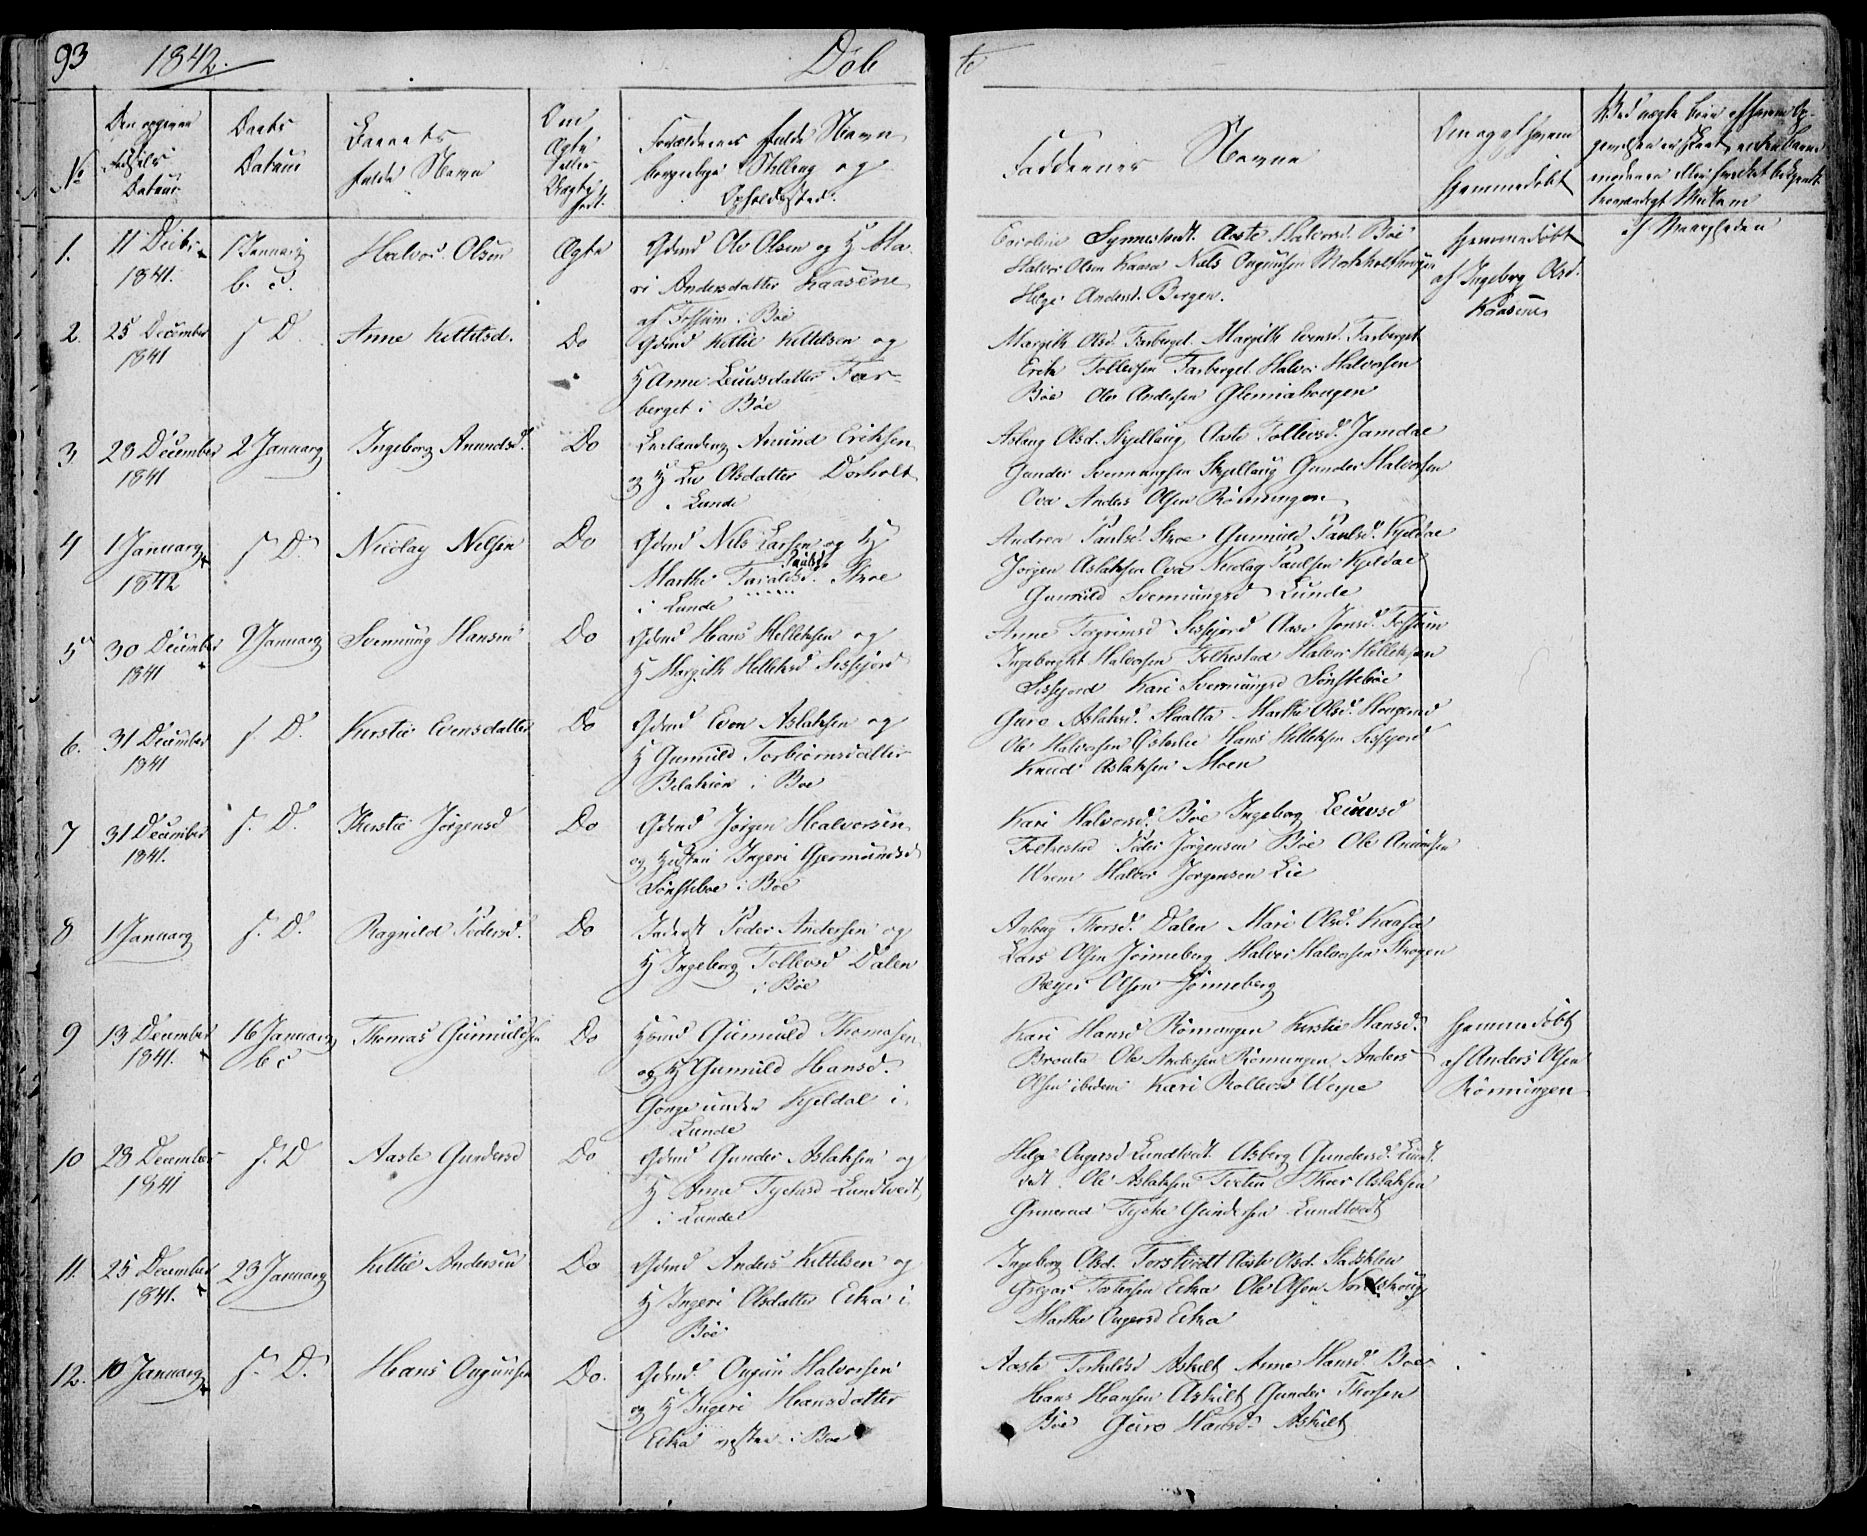 93 1842. Døb te
No
Den opgivne Fødsels Datum
Daabs Datum
Barnets fulde Navn
Om Ægte eller Uægte født.
Forældrenes fulde Navn borgerlige Stilling og Opholdssted.
Faddernes Navne
Om og af hvem hjemmedøbt
1. 11 Decbr 1841. 1 Januarij b. c. Halvor Olsen Ægte Gdmd Ole Olsen og H Ma
ri Andersdatter Kaasene
af Fossum i Bøe
Caroline Synnestvedt. Aaste Halvorsd. Bøe
Halvor Olsen Kaasa Niels
Helge Andersd. Borgen.
hjemmedøbt
af Ingeborg Olsd.
Kaasene
2. 25 December 1841 s. D. Anne Kittilsd. Do Gdmd Kittil Kittilsen og
H Anne Leuvsdatter Far-
berget i Bøe
Margith Olsd. Farberget. Margith Evensd. Farberget
Erik Tollefsen Farberget. Halvor Halvorsen
Bøe Ole Andersen
3. 28 December 1841 2 Januarij Ingeborg Anundsd. Do Anund Eriksen
og H Liv Olsdatter Dorholt
i Lunde
Aslaug Olsd. Skjellaug, Aaste Tollevsd. Jamdae
Gunder Svenungsen Skjellaug Gunder Halvorsen
Ova Anders Olsen Rönningen
4 1 Januarij 1842 s. D. Nicolay Nilsen Do Gdmd Nils Larsen og H
Marthe Taraldsd. Paulsd. Skoe
i Lunde
Andrea Paulsd. Skoe Gunnild Paulsd. Kjeldae
Jørgen Aslaksen Ova Nicolay Paulsen Kjeldae
Gunnild Svenungsd Lunde
5 30 December 1841 9 Januarij Svennung Hansen Do Gdmd Hans Helleksen og
H Margith Helleksd Sessjord
Anne Torgrimsd Sessjord Aase Jonsd. Fossum
Ingebreght Halvorsen Folkestad Halvor Helleksen
Sessjord Kari Svenungsd Sønsteböe
6. 31 December 1841 s. D. Kirstie Evensdatter Do Gdmd Even Aslaksen og
H Gunnild Torbiornsdatter
i Boe
Guro Aslaksd. Skaatta Marthe Olsd. Haugerud
Ole Halvorsen Østerlie Hans Helleksen Sessjord
Knud Aslaksen Moen
7 31 December 1841. s. D. Kirstie Jörgensd Do Gdmd Jörgen Halvorsen
og Hustru Ingeri Gjermundsd
Sönsteboe i Böe
Kari Halvorsd. Böe Ingeborg Leuvsd
Folkestad Peder Jörgensen Böe Ole Anundsen
Wrem Halvor Jorgensen Lie
8 1 Januarij s. D. Ragnild Pedersd. Do Inderst Peder Andersen og
H Ingeborg Tollevsd Dalen
i Böe
Anlaug Thorsd. Dalen Mari Olsd. Kaasa
Lars Olsen Jönneberg Halvor Halvorsen Skogen
Olsen Jönneberg
9 13 December 1841. 16 Januarij b c Thomas Gunnuldsen Do Hsmd Gunnuld Thomasen
og H Gunnild Hansd.
Gonge under Kjeldal i
Lunde
Kari Hansd Rönningen Kirstie Hansd.
Brouta Ole Andersen Rönningen Anders
Olsen ibidem Kari Rollevsd Werpe
hjemmedöbt
af Anders Olsen
Rönningen
10 28 December 1841 s. D Aaste Gundersd Do Gdmd Gunder Aslaksen og
H Anne Tychsd Lundtvedt
i Lunde
Helge Ougersd Lundtvedt. Asberg Gundersd. Lundt.
vedt Ole Aslaksen Aslaksen
Grimerud Tycke Gundersen Lundtvedt
11. 25 December 1841. 23 Januarij Kittil Andersen Do Gdmd Anders Kittilsen og
H Ingeri Olsdatter Eika i
Böe
Ingeborg Olsd. Forstvedt Aaste Olsd.
Gregar Torstensen Eika Ole Olsen Nordskoug
Marthe Ougersd Eika
12. 10 Januarij s. D. Hans Ougunsen Do. Gdmd Ougun Halvorsen
og H Ingeri Hansdatter
Eika vestre i Boe
Aaste Torkildsd Askilt Anne Hansd Boe
Hans Hansen Askilt Gunder Thorsen
Böe Guro Hansd. Askilt